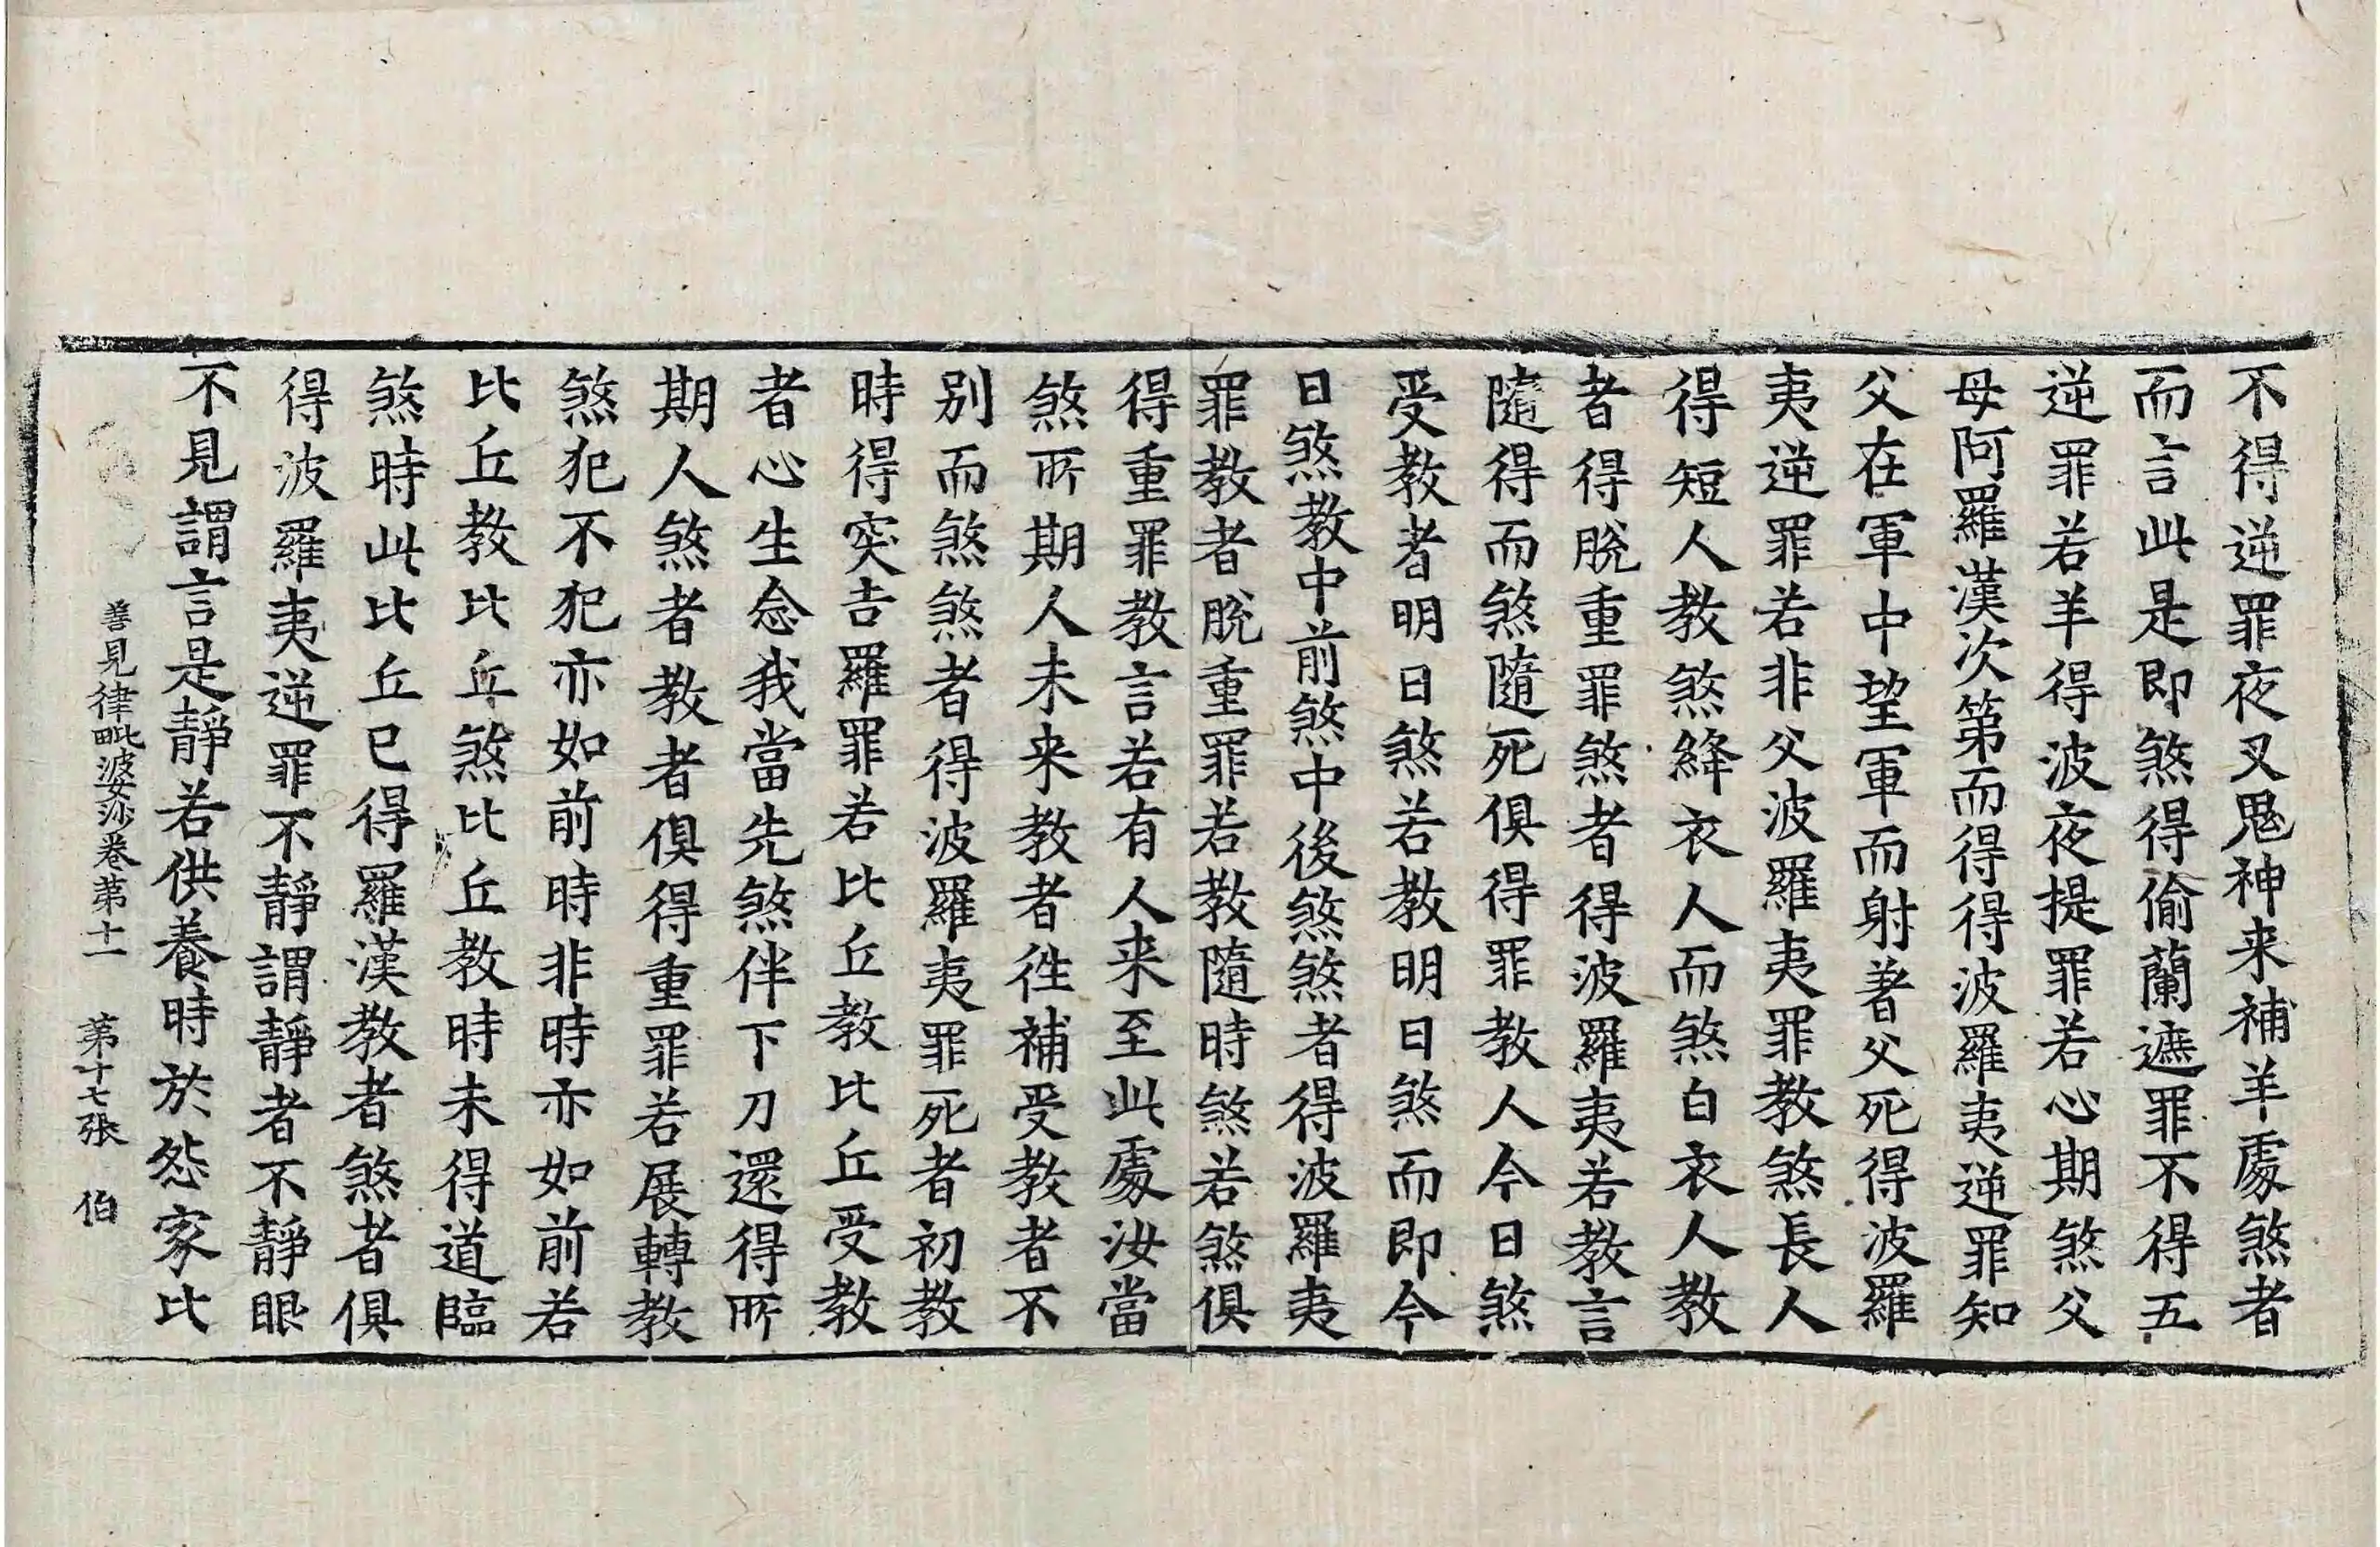 不得逆罪夜叉鬼神来補羊處煞者
而言此是即煞得偷蘭遮罪不得五
逆罪若羊得波夜提罪若心期煞父
母阿羅漢次第而得得波羅夷逆罪知
父在軍中望軍而射著父死得波羅
夷逆罪若非父波羅夷罪教煞長人
得短人教煞絳衣人而煞白衣人教
者得脫重罪煞者得波羅夷若教言
隨得而煞隨死俱得罪教人今日煞
受教者明日煞若教明日煞而即今
日煞教中前煞中後煞煞者得波羅夷
罪教者脫重罪若教隨時煞若煞俱
得重罪教言若有人来至此處汝當
煞所期人未来教者徃補受教者不
別而煞煞者得波羅夷罪死者初教
時得突吉羅罪若比丘教比丘受教
者心生念我當先煞伴下刀還得所
期人煞者教者俱得重罪若展轉教
煞犯不犯亦如前時非時亦如前若
比丘教比丘煞比丘教時未得道臨
煞時此比丘已得羅漢教者煞者俱
得波羅夷逆罪不靜謂靜者不靜眼
不見謂言是靜若供養時於怨家比
善見律毗婆沙卷第十一　第十七張　伯